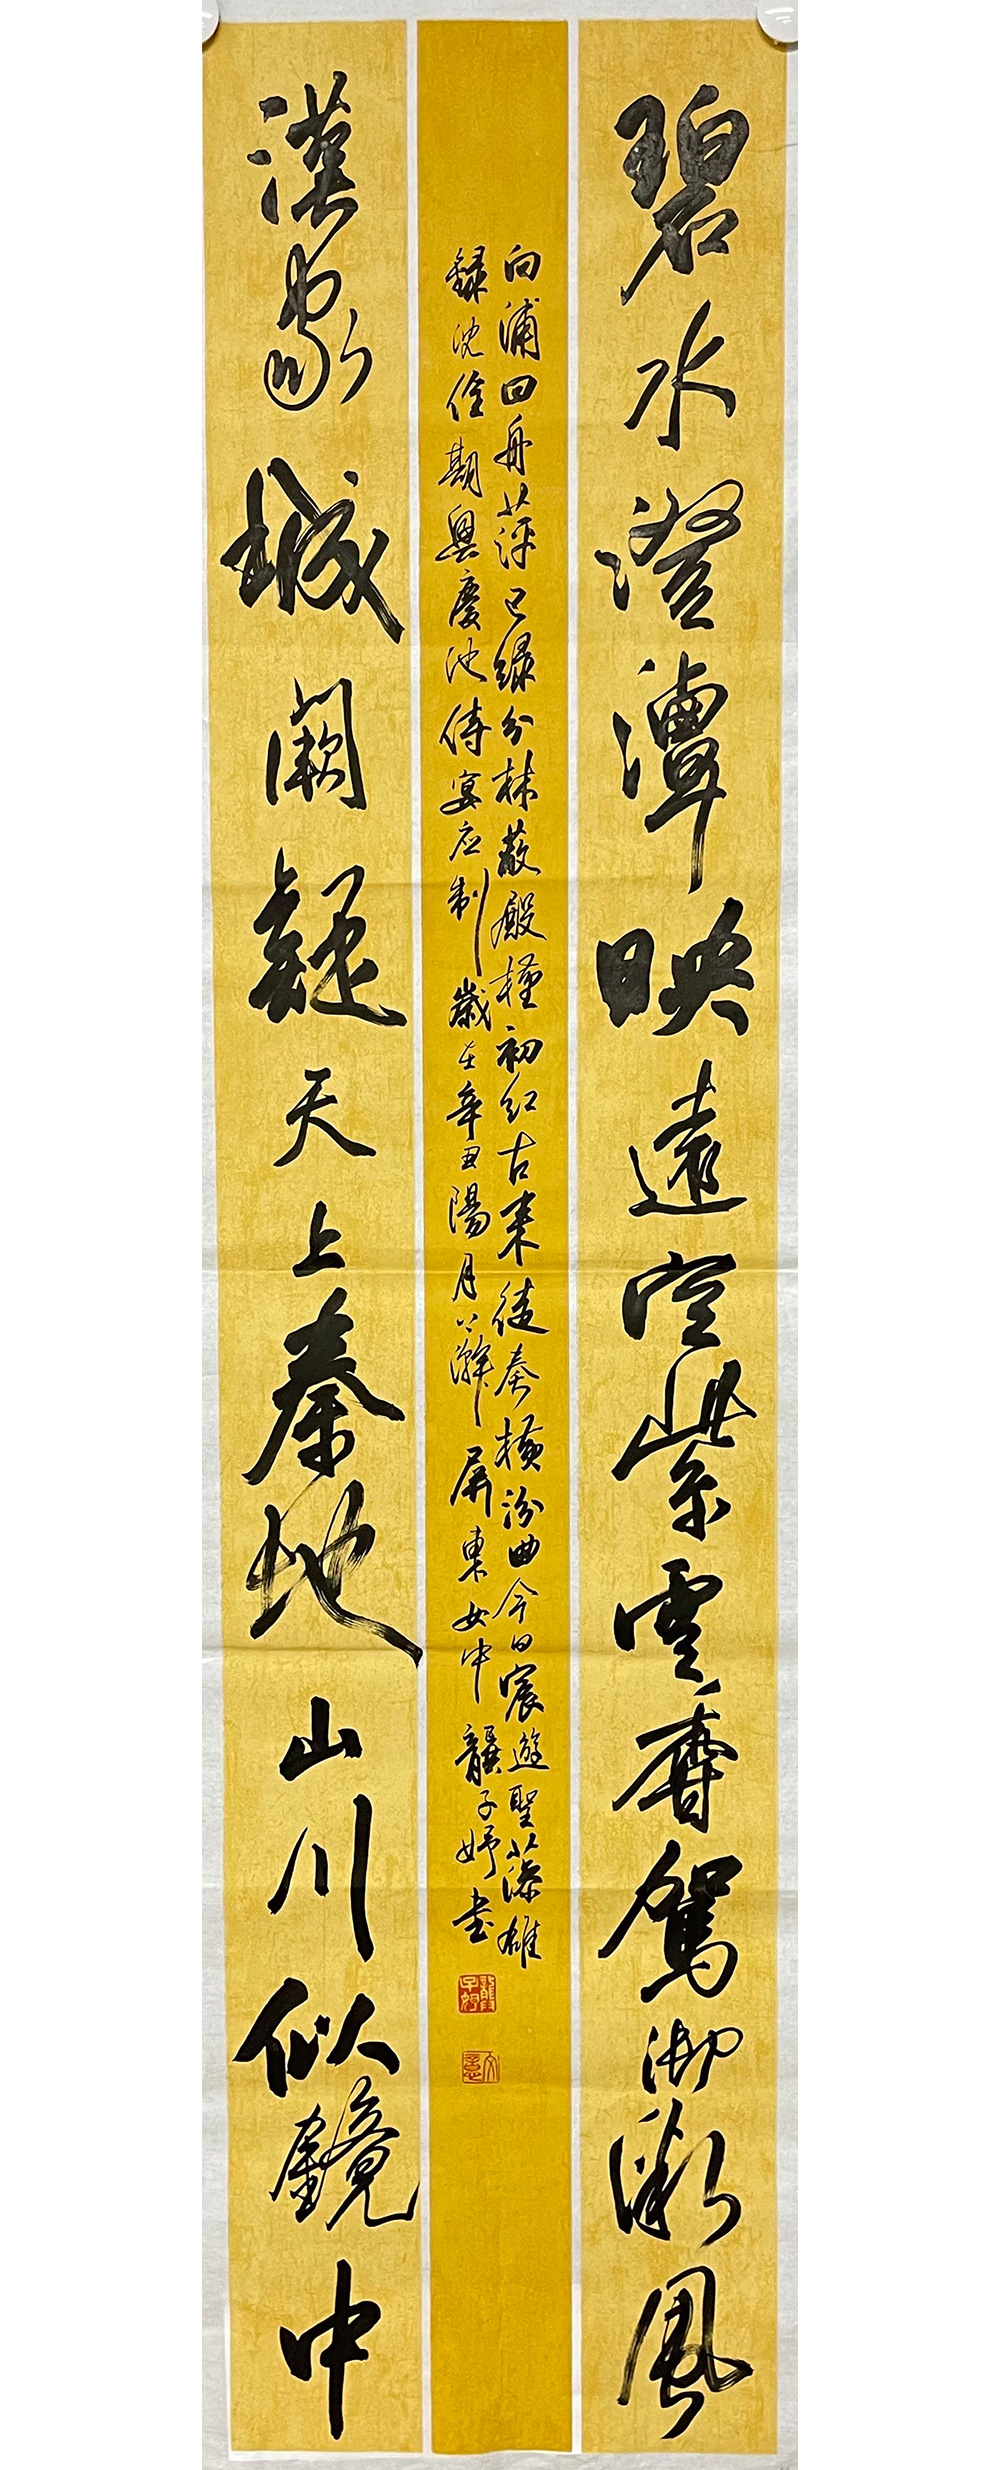 碧水澄潭映遠空紫雲香駕御微風
向浦回舟萍已綠分林蔽殿槿初紅古來徒奏橫汾曲今日宸遊聖藻雄
錄沈佺期興慶池侍宴应制歲在辛丑陽月上澣屏東女中龔子妤書
漢家城闕疑天上秦地山川似鏡中
龔子妤